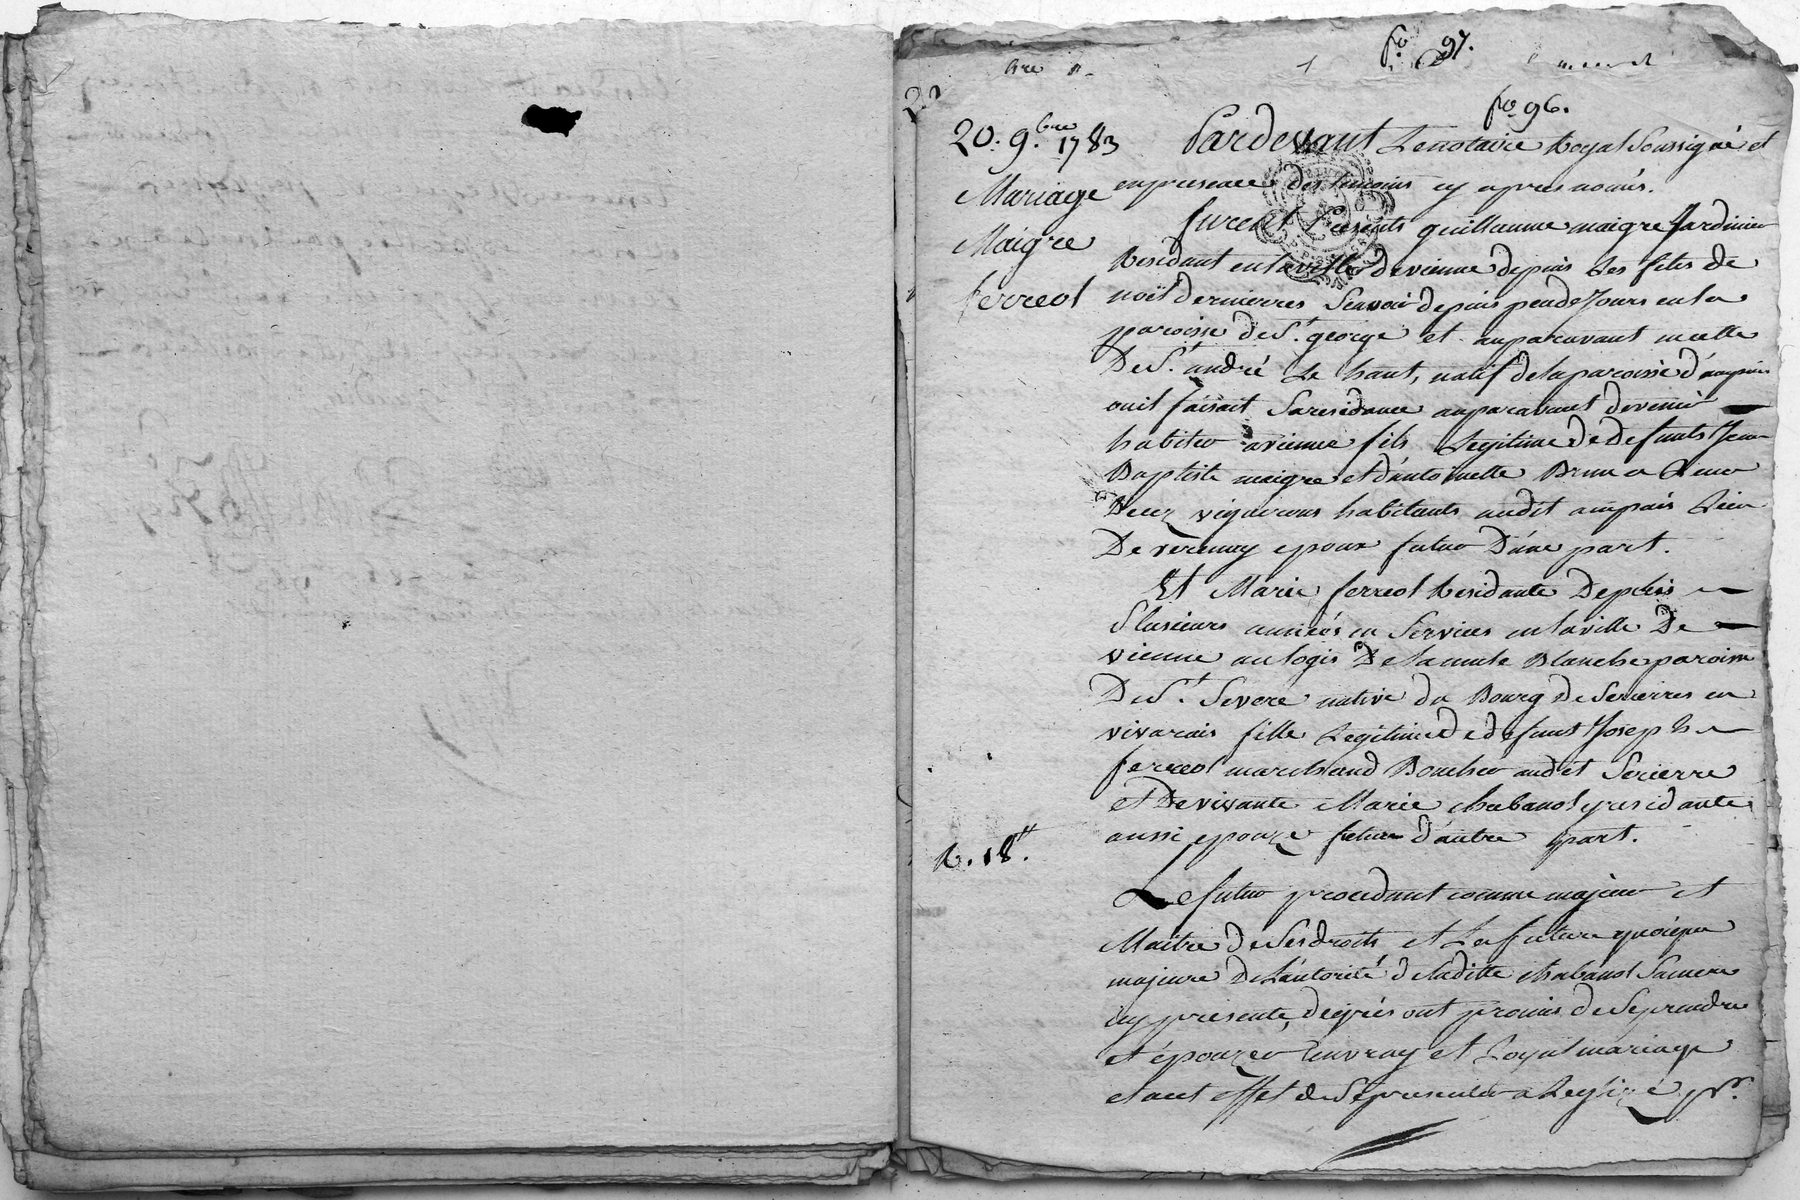 fo. 97.
fo 96.
20. 9.bre 1783
Mariage
Maigre
ferreol
R. 18tt.
Pardevant Lenotaire Royal Soussigné et
enpresence des temoins cy apres només.
furent Presents guillaume maigre Jardinier
Residant enlaville devienne depuis les fetes de
noël dernierres Scavoir depuis peudeJours enla
paroisse deSt. george et auparavant encelle
DeSt. andré Le haut, natif delaparoisse d'ampuis
ouil faisait Saresidance auparavant devenir
habiter avienne fils Legitime dedefunts Jean
Baptiste maigre et d'antoinette Brun
vignerons habitants audit ampuis Lieu
De verenay epoux futur D'une part.
Et Marie ferreol Residante Depuis
Plusieurs années en Services enlaville De
vienne aulogis Delamule Blanche paroisse
DeSt. Severe native du Bourg deSerierres en
vivarais fille Legitime dedefunt Joseph
ferreol marchand Boucher audit Serierre
et Devivante Marie chabanol yresidante
aussi epouze future d'autre part.
Lefutur procedant comme majeur et
Maitre deSesdroits et Lafuture quoique
majeure DeL'autorité deladitte chabanol Samere
icy presente, degrés ont promis deSeprendre
et épouzer envray et Loyal mariage
etacet effet deSepresenter aLeglize pr.